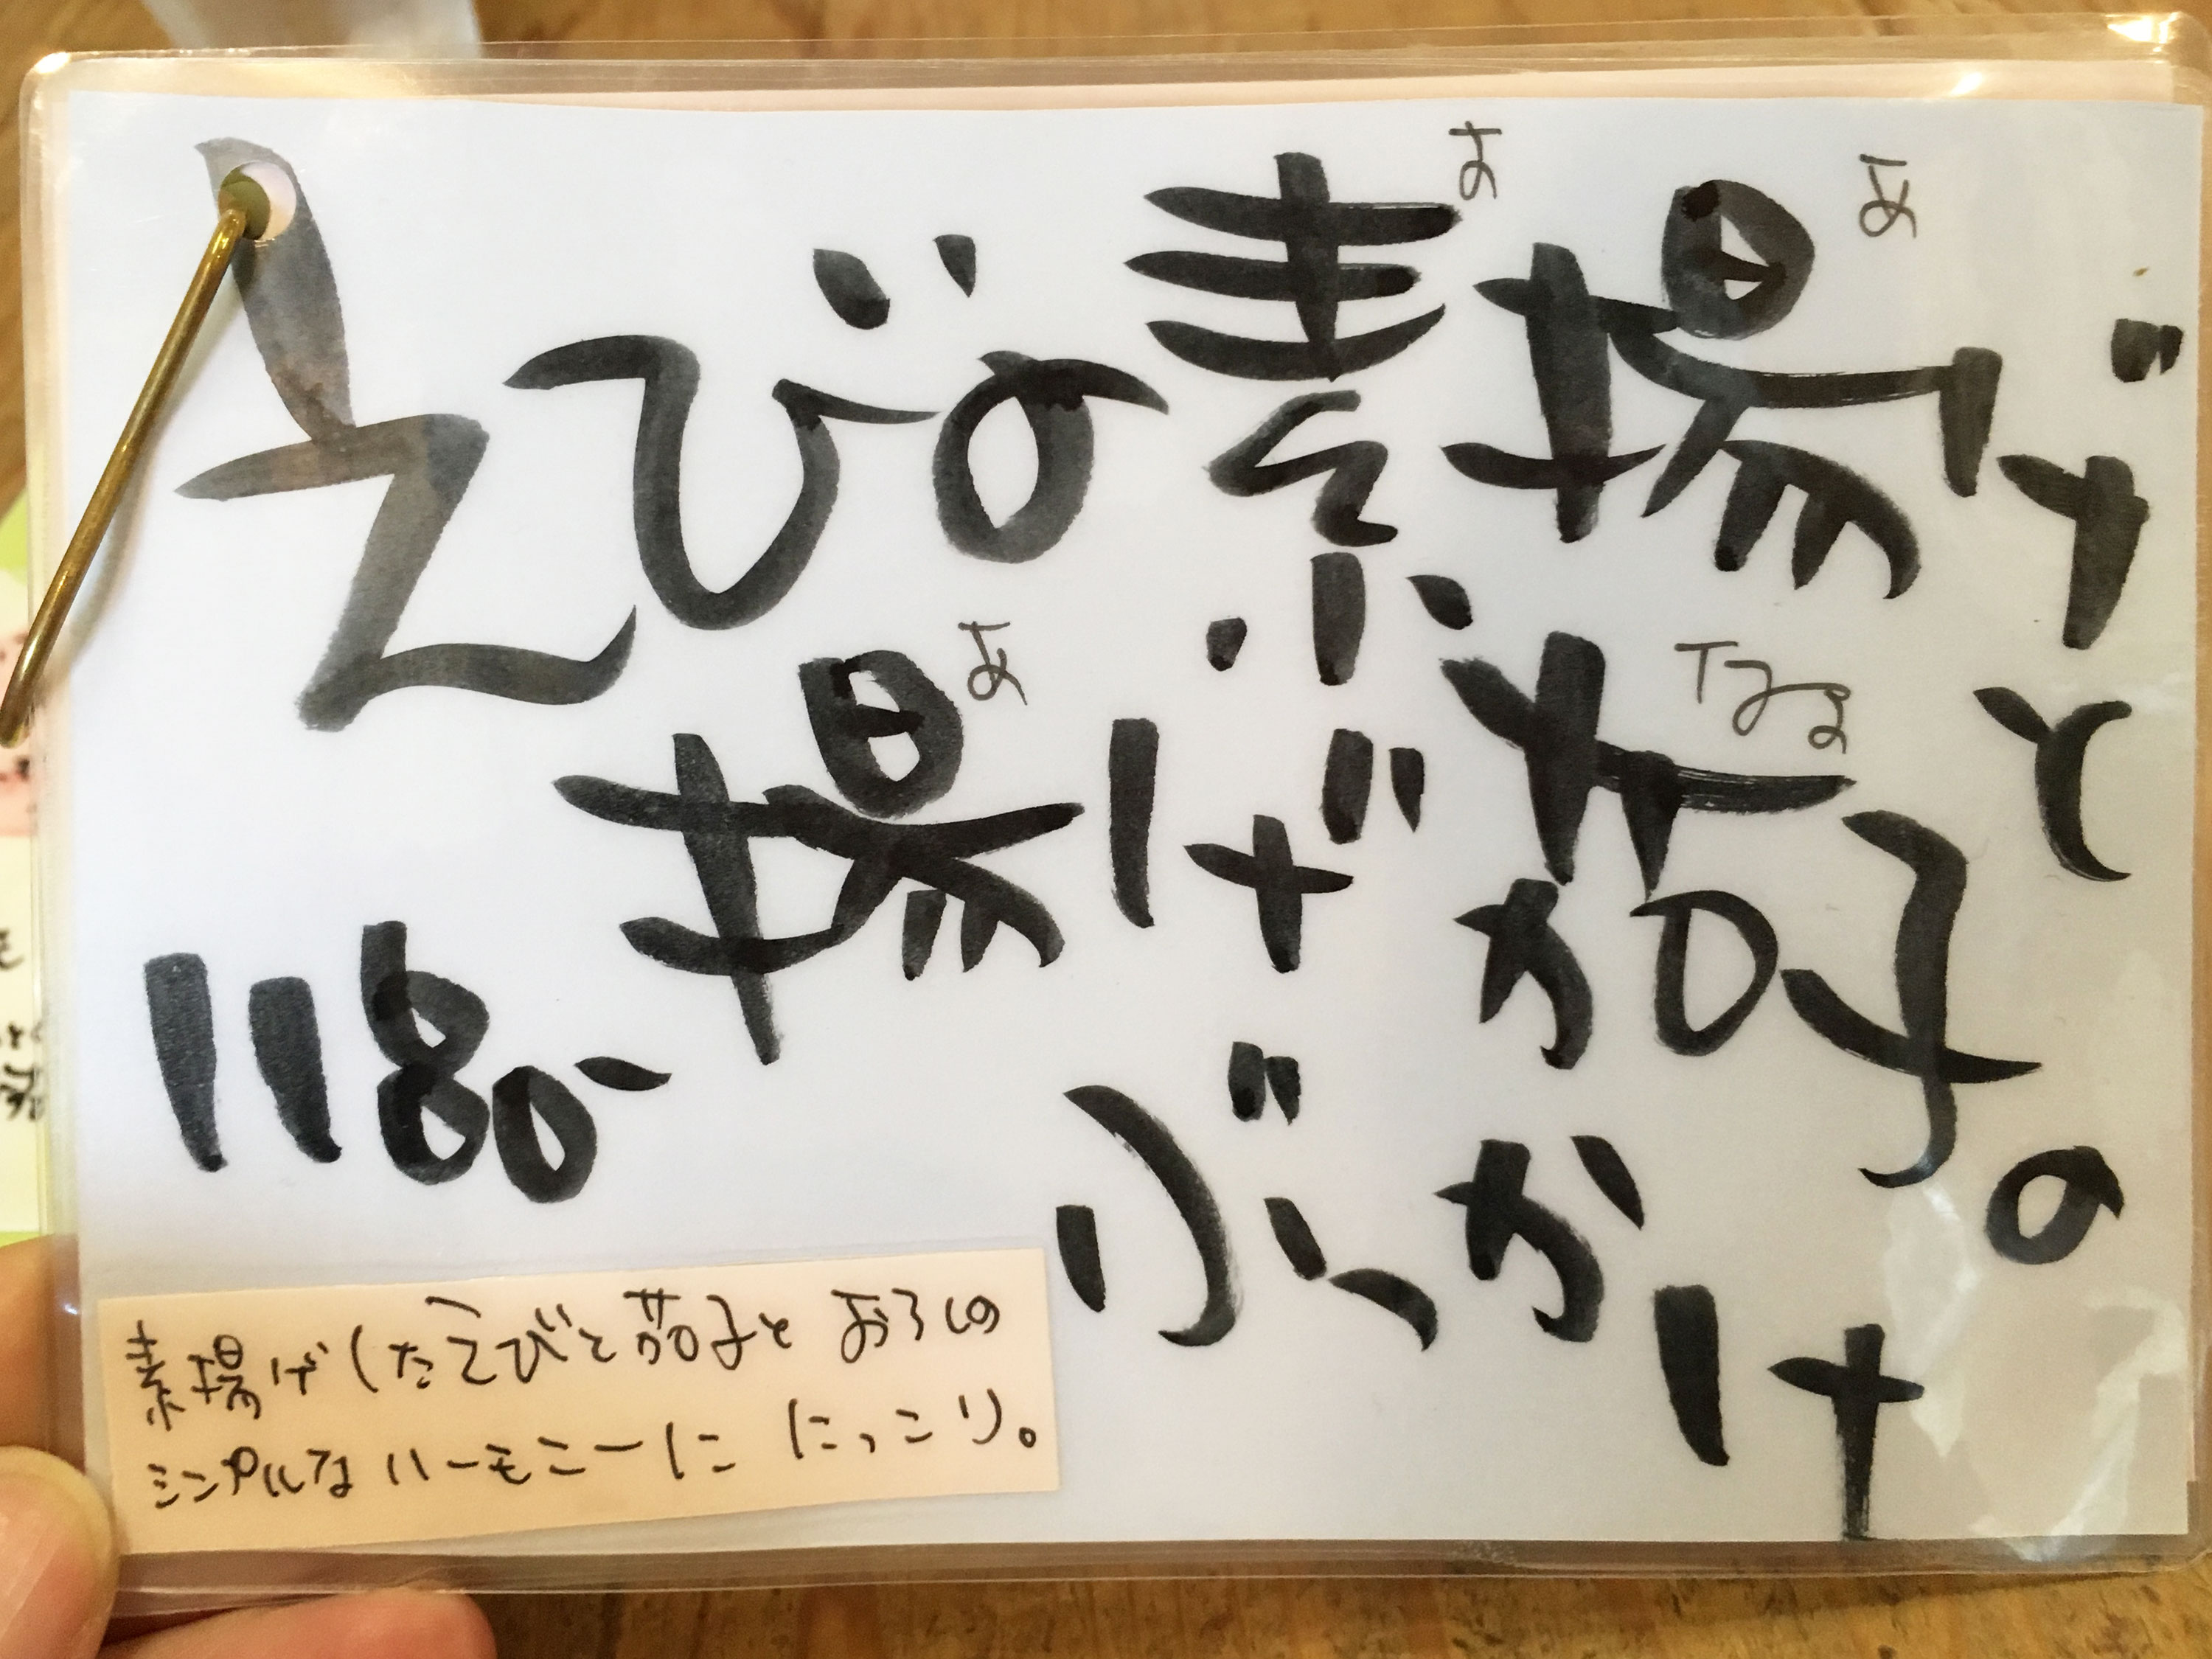 す あ
えびの素揚げと
あ なす
揚げ茄子の
ぶっかけ
1180-
素揚げしたえびと茄子とおろしの
シンプルなハーモニーに にっこり。